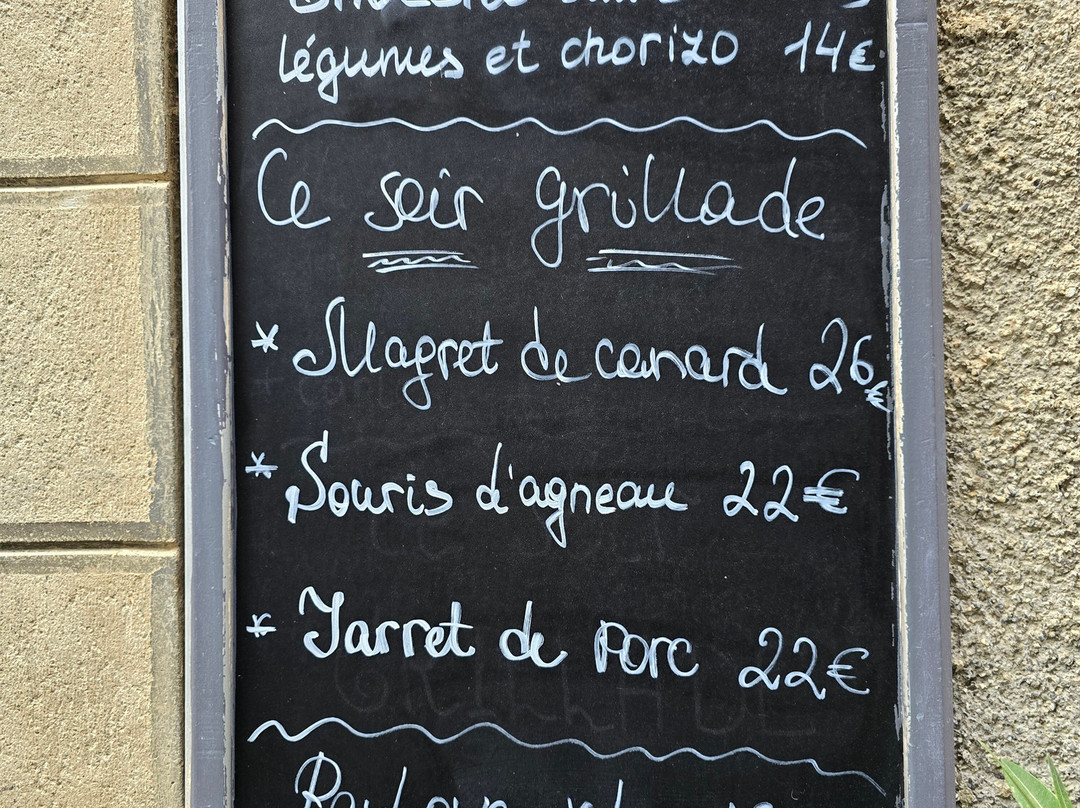 légumes et chorizo 14€
Ce soir grillade
* Magret de canard 26€
* Souris d'agneau 22€
* Jarret de porc 22€